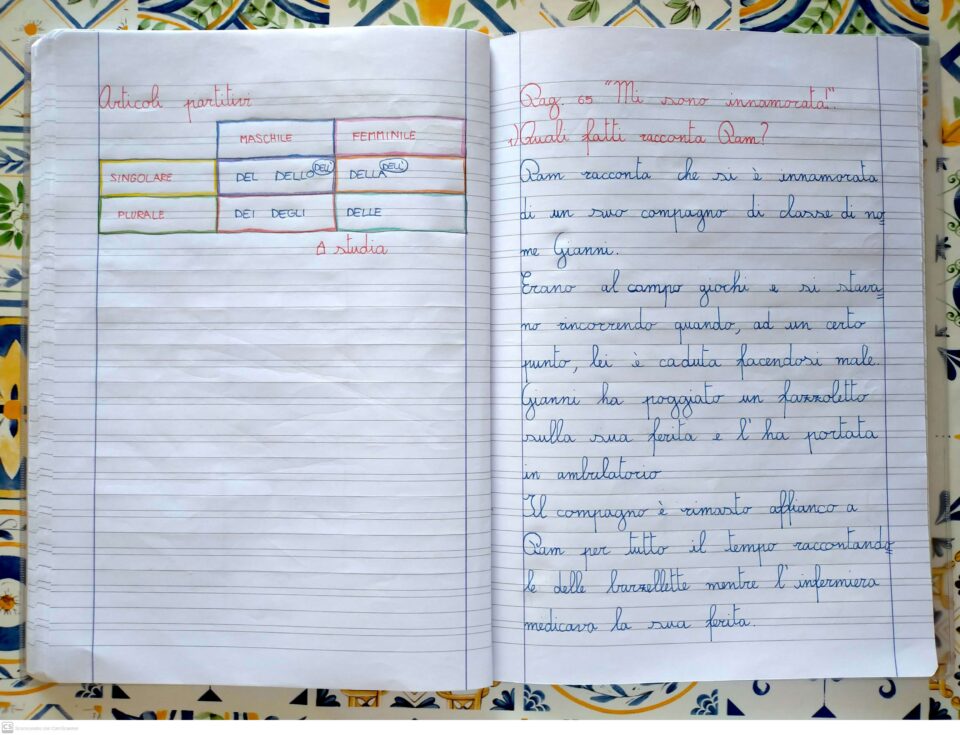 Articoli partitivi
MASCHILE FEMMINILE
SINGOLARE DEL DELLO DELL' DELLA DELL'
PLURALE DEI DEGLI DELLE
studia
Pag. 65 "Mi sono innamorata!".
1) Quali fatti racconta Pam?
Pam racconta che si è innamorata
di un suo compagno di classe di no
me Gianni.
Erano al campo giochi e si stava
no rincorrendo quando, ad un certo
punto, lei è caduta facendosi male.
Gianni ha poggiato un fazzoletto
sulla sua ferita e l'ha portata
in ambulatorio
Il compagno è rimasto affianco a
Pam per tutto il tempo raccontando
le delle barzellette mentre l'infermiera
medicava la sua ferita.
CS Scansionato con CamScanner